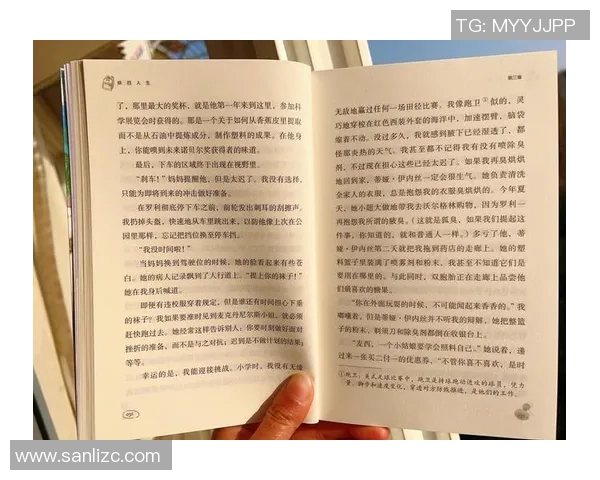 TG: MYYJJPP
麻烦人生
了，那里最大的奖杯，就是他第一年来到这里，参加科
学展览会时获得的。那是一个关于如何从香蕉皮里提取
而不是从石油中提炼成分，制作塑料的成果。在他身
上，你能嗅到未来诺贝尔奖获得者的味道。
最后，下车的区域终于出现在视野里。
“刹车！”妈妈提醒他，但是太迟了。我没有选择，
只能为即将到来的冲击做好准备。
在罗利彻底停下车之前，前轮发出刺耳的刮擦声，
我扔掉头盔，快速地从车里跳出来，以防他像上次在公
园里那样，忘记把挡位换至停车挡。
“我没时间啦！”
当妈妈换到驾驶位的时候，她的脸看起来有些苍
白。她的病人记录飘到了人行道上。“提上你的袜子！”她
在我身后喊道。
即便有连校服穿着规定，但是谁还有时间担心下垂
的袜子？我如果要准时见到麦克丹尼尔斯小姐，就必须
赶快跑过去。她经常这样告诉别人：你要时刻做好面对
挫折的准备，而不是与之对抗；迟到是不做计划的结果；
等等。
幸运的是，我能迎接挑战。小学时，我没有天
第三章
无敌地赢过任何一场田径比赛。我像跑卫②似的，灵
巧地穿梭在红色西装外套的海洋中，加速摆臂，脑袋
缩着不动。没过多久，我就感到腋下已经湿透了，都
怪那炎热的天气。我甚至都不记得我有没有喷除臭
剂，不过现在担心这些已经太迟了。如果我再臭烘烘
地回到家，蒂娅·伊内丝一定会很生气。她负责清洗
全家人的衣服，总是抱怨我的衣服臭烘烘的。今年夏
天，她小题大做地带我去沃尔格林购物，因为罗利一
再抱怨我所谓的腋臭。（这就是狐臭，如果我们提起这
件事，你知道的，就和普通人一样。）多亏了他，蒂
娅·伊内丝第二天就把我拖到药店的走廊上。她的塑
料篮子里装满了喷雾剂和粉末，我甚至不知道它们是
要用在哪里的。与此同时，双胞胎正在走廊上品尝他
们最喜欢的糖果。
“你在外面玩耍的时候，不可能闻起来香香的。”我
嘟囔着，但是蒂娅·伊内丝并不听我的辩解，她把整篮
子的粉末、剃须刀和除臭剂都倒在收银台上。
“麦西，一个小姑娘要学会照料自己。”她说着，递
过来一张买二付一的优惠券。“不管你喜不喜欢，是时
①跑卫：美式足球比赛中，跑卫是持球跑动进攻的球员，凭力
量、脚步和速度变化，穿透对方防线推进，是他们的工作。
www.sanlizc.com